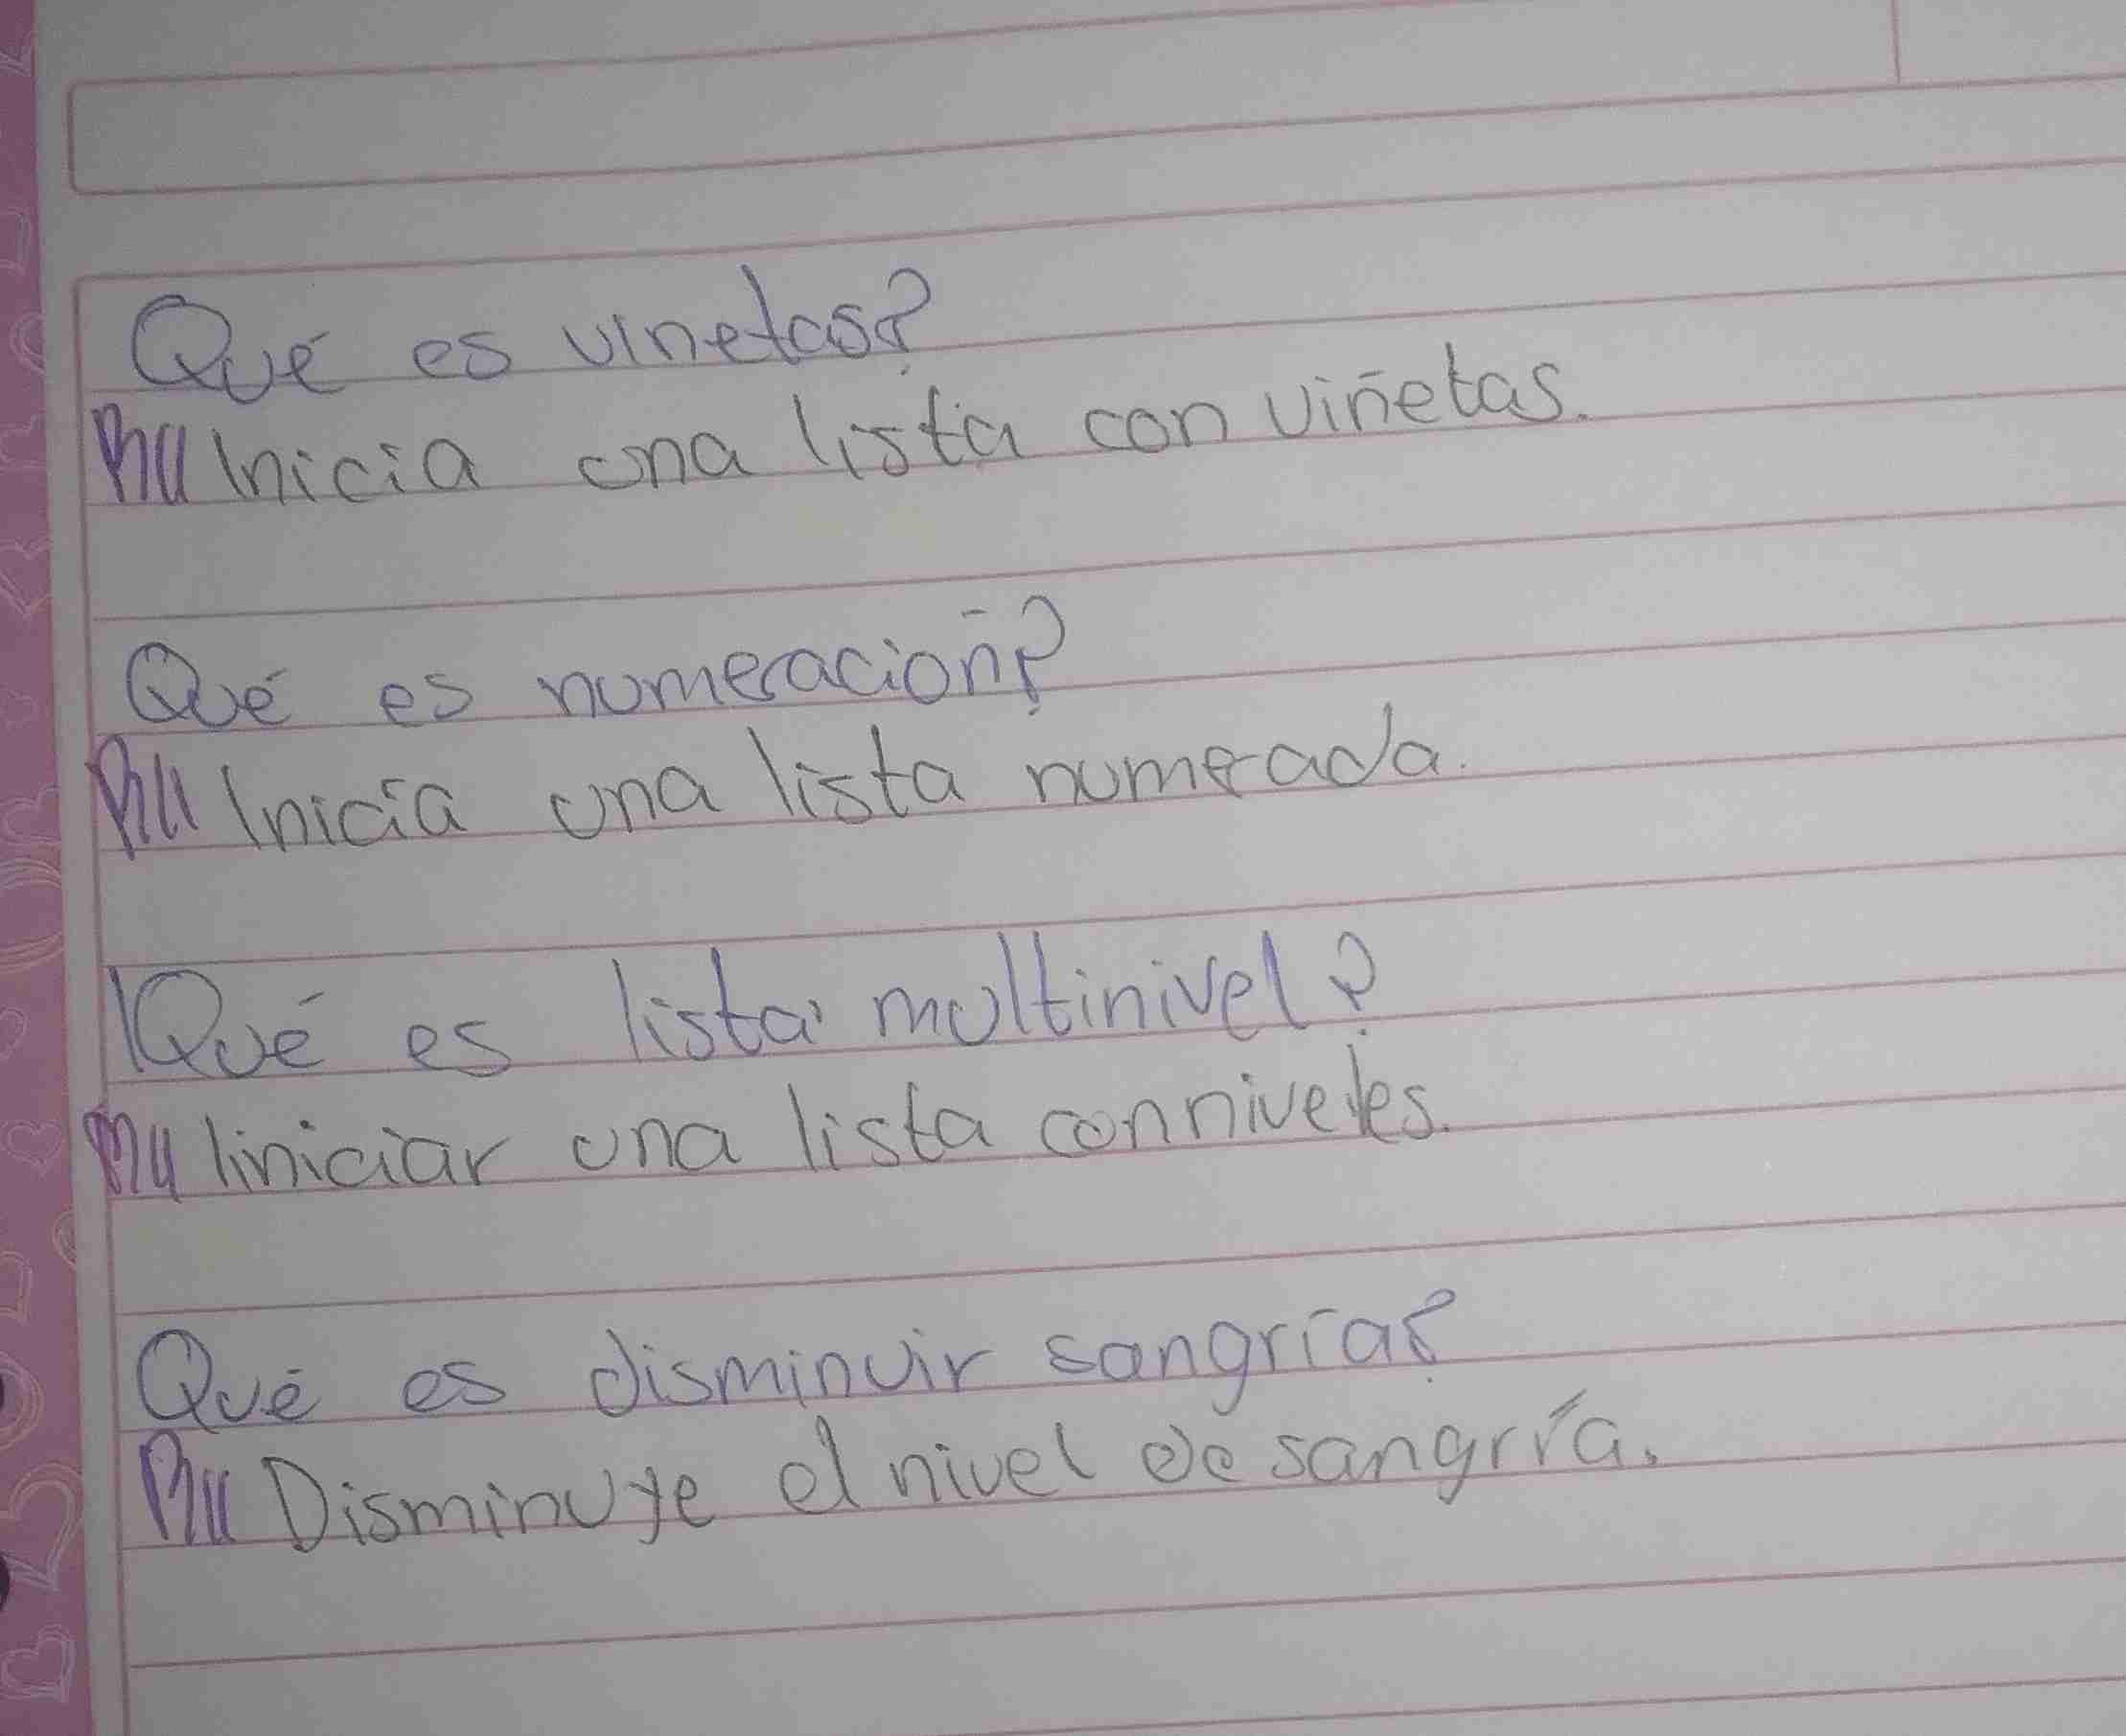 Qué es vinetas?
Rll Inicia una lista con viñetas.
Qué es numeracioñ?
Rll Inicia una lista numerada.
Qué es lista multinivel?
Rll Iiniciar una lista con niveles.
Qué es disminuir sangría?
Rll Disminuye el nivel de sangría.